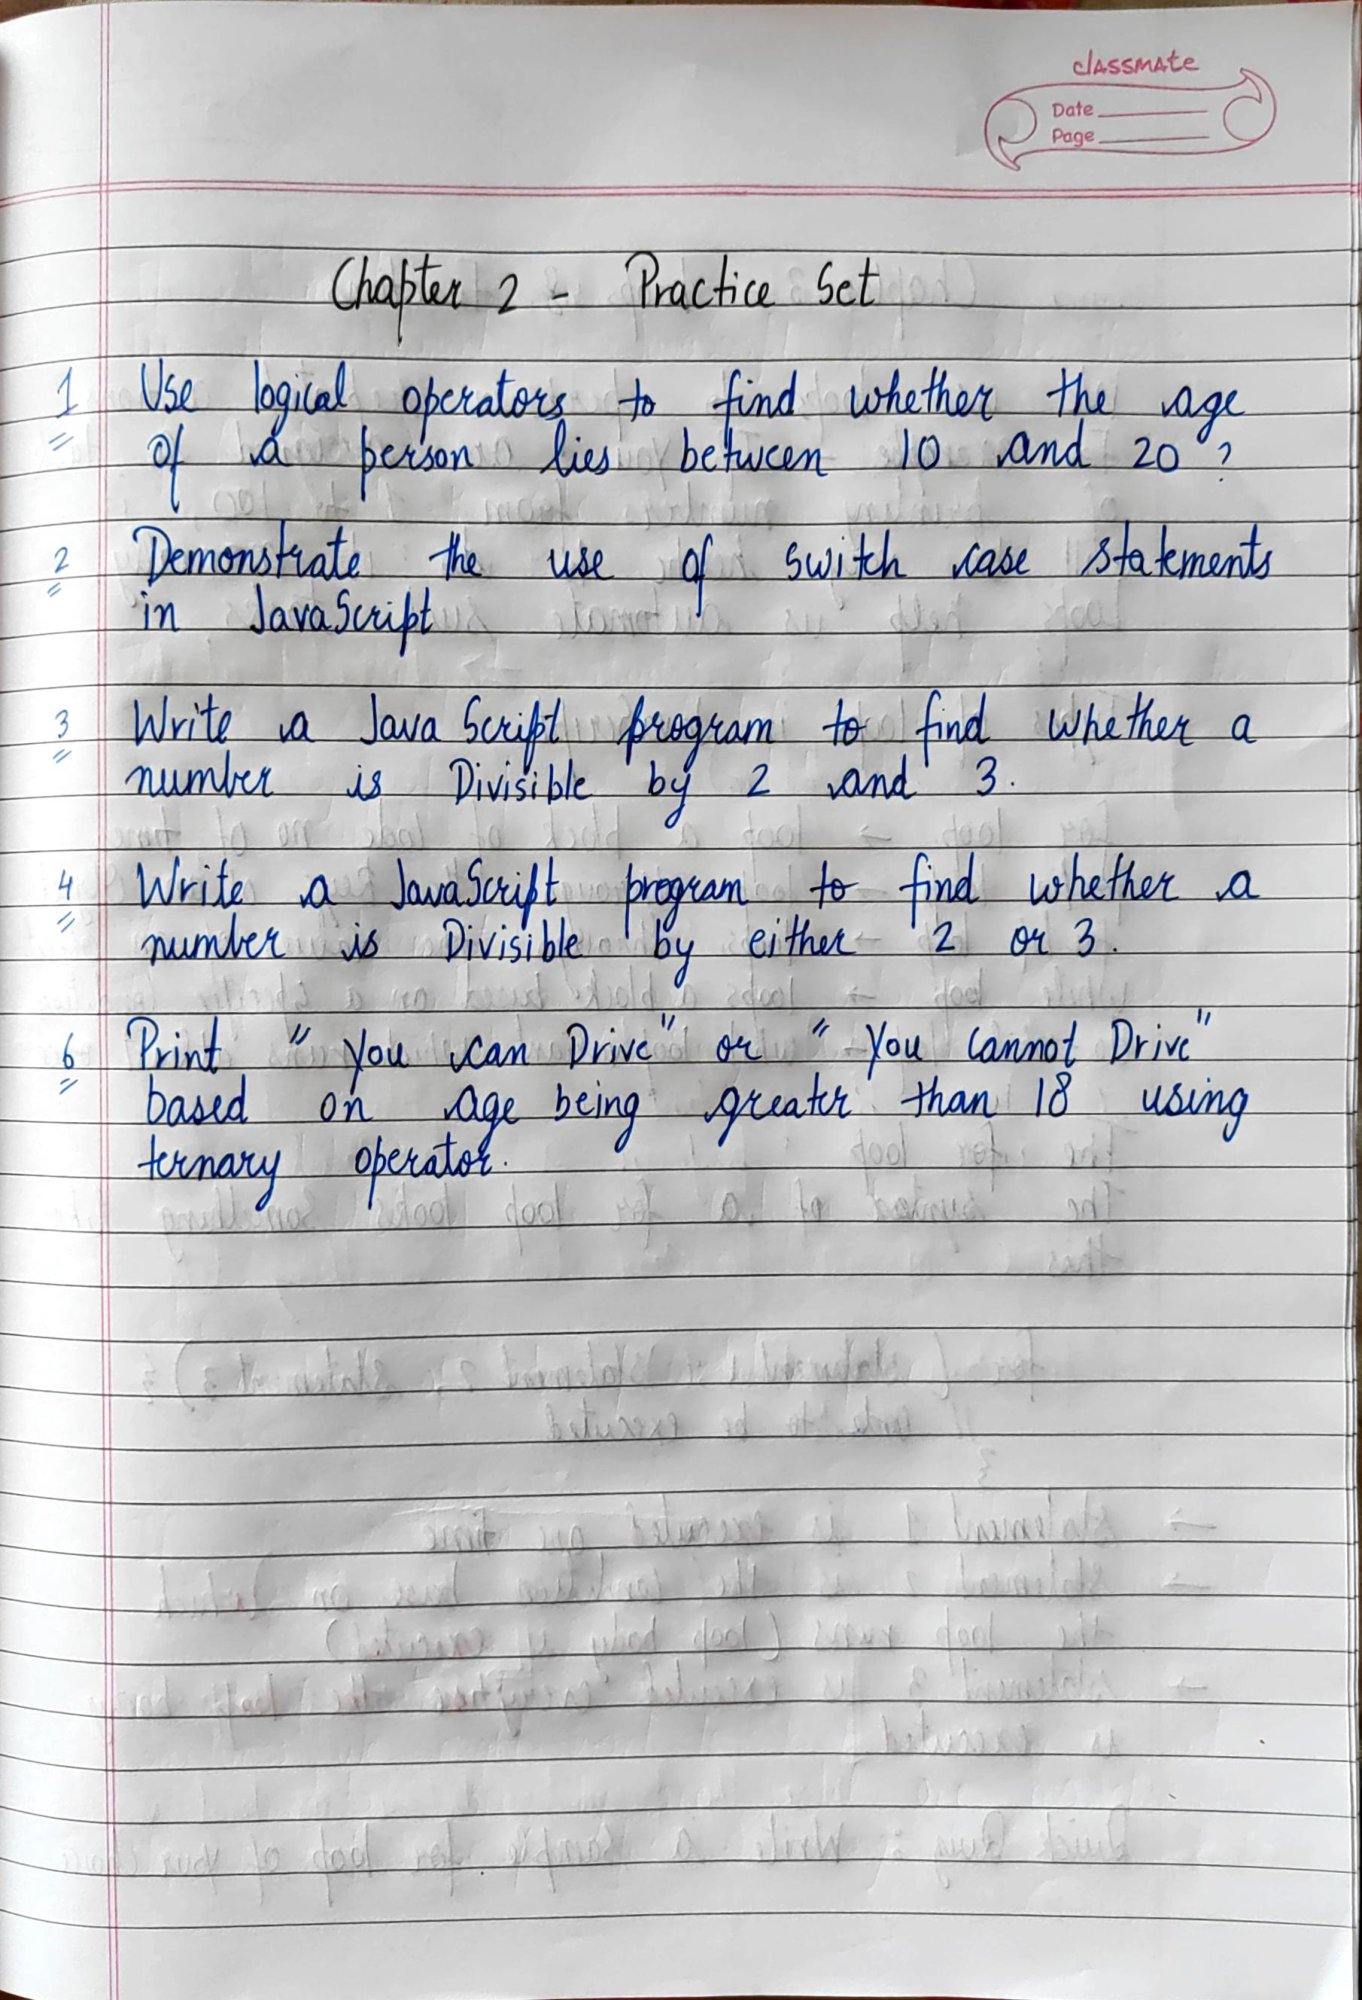 classmate
Date
Page
Chapter 2 - Practice Set
1 Use logical operators to find whether the age
of a person lies between 10 and 20 ?
2 Demonstrate the use of switch case statements
in JavaScript
3 Write a Java Script program to find whether a
number is Divisible by 2 and 3.
4 Write a JavaScript program to find whether a
number is Divisible by either 2 or 3.
6 Print " You can Drive" or " You Cannot Drive"
based on age being greater than 18 using
ternary operator.